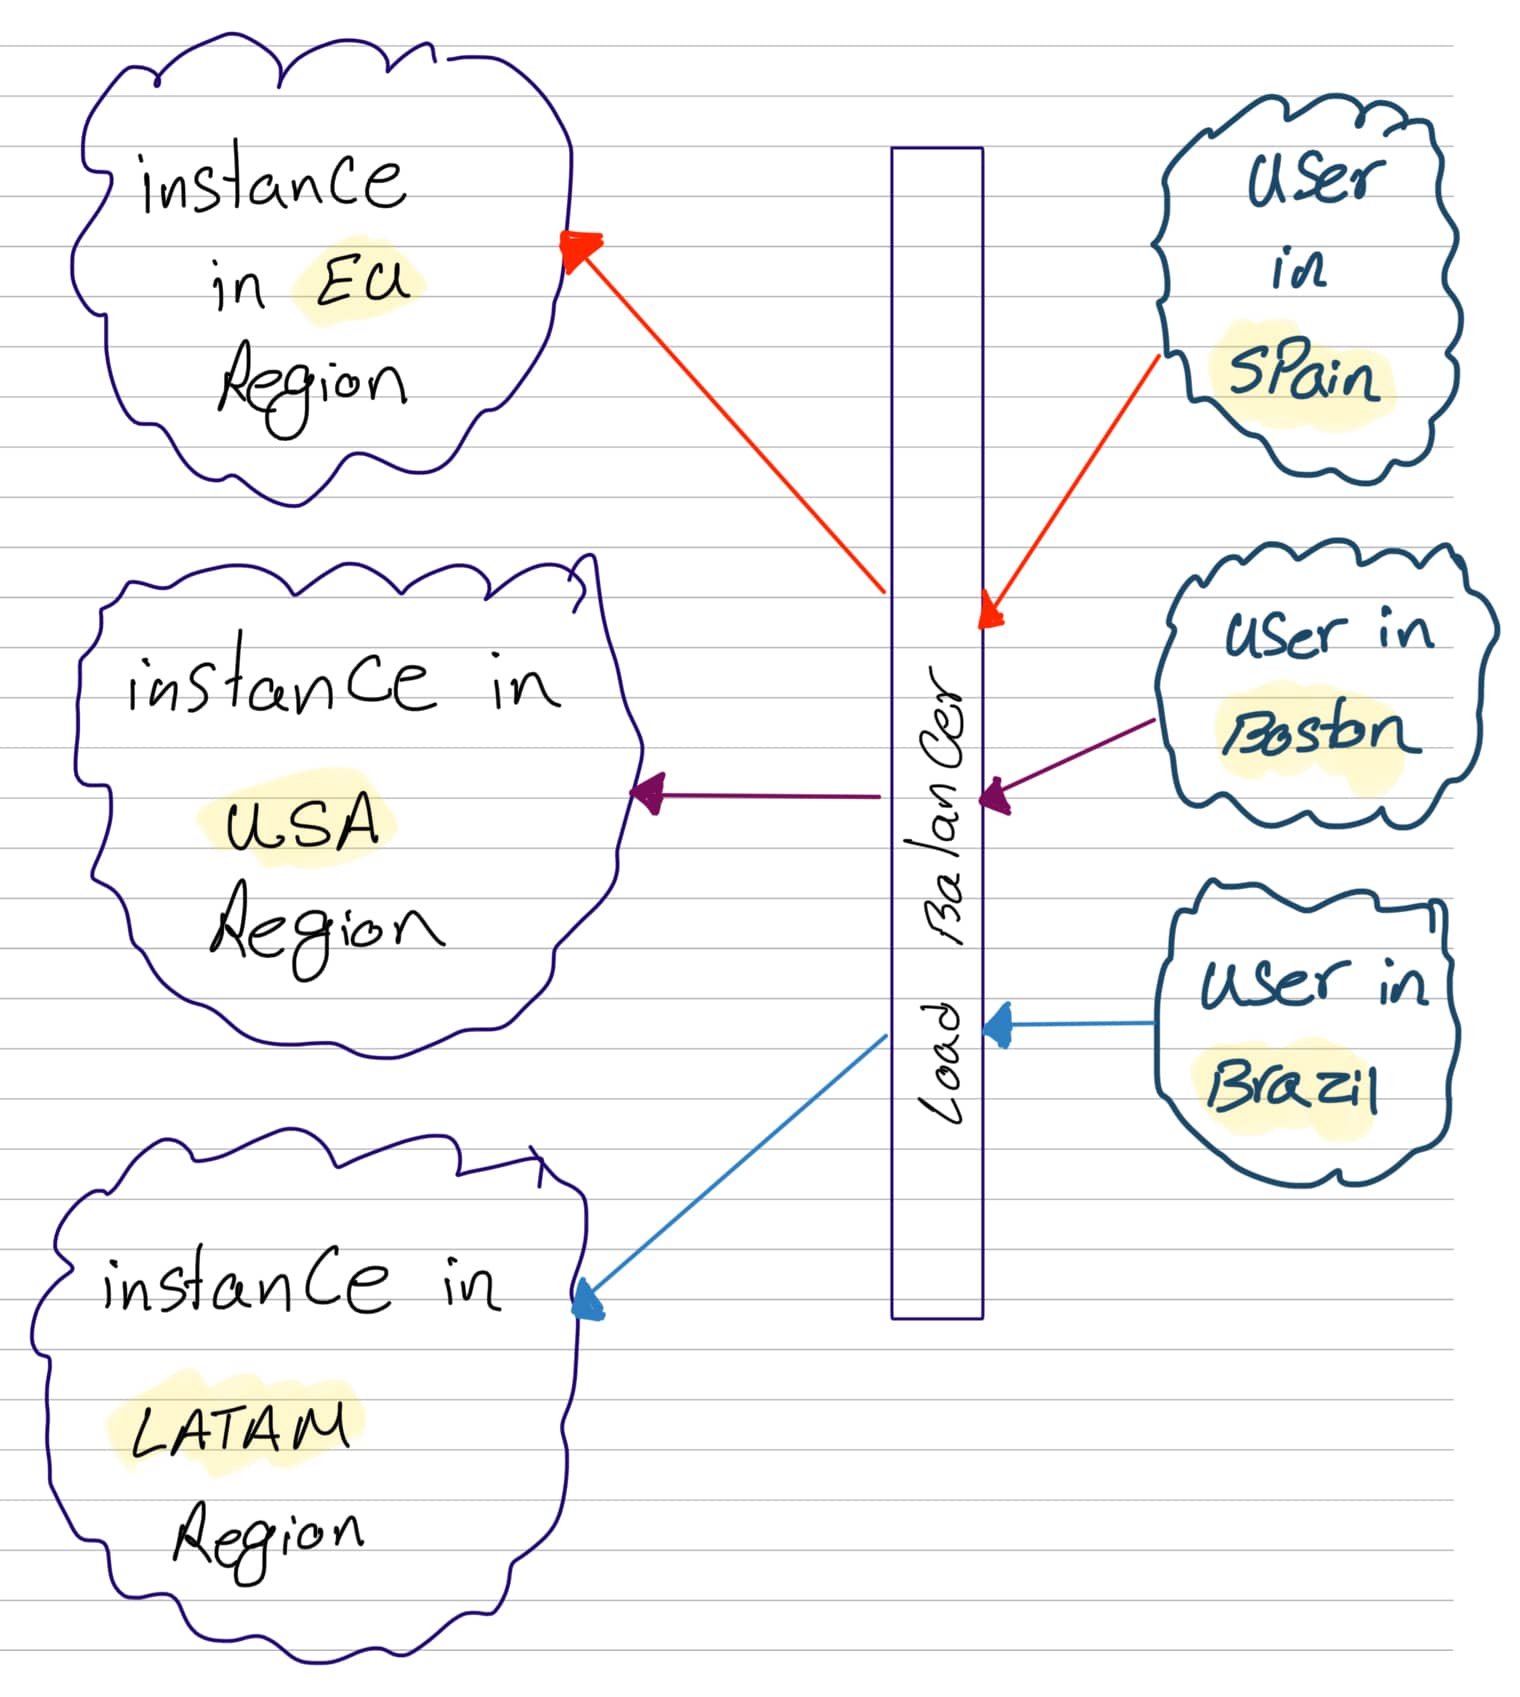 instance
in EU
Region
instance in
USA
Region
instance in
LATAM
Region
Load Balancer
user
in
SPain
user in
Boston
user in
Brazil